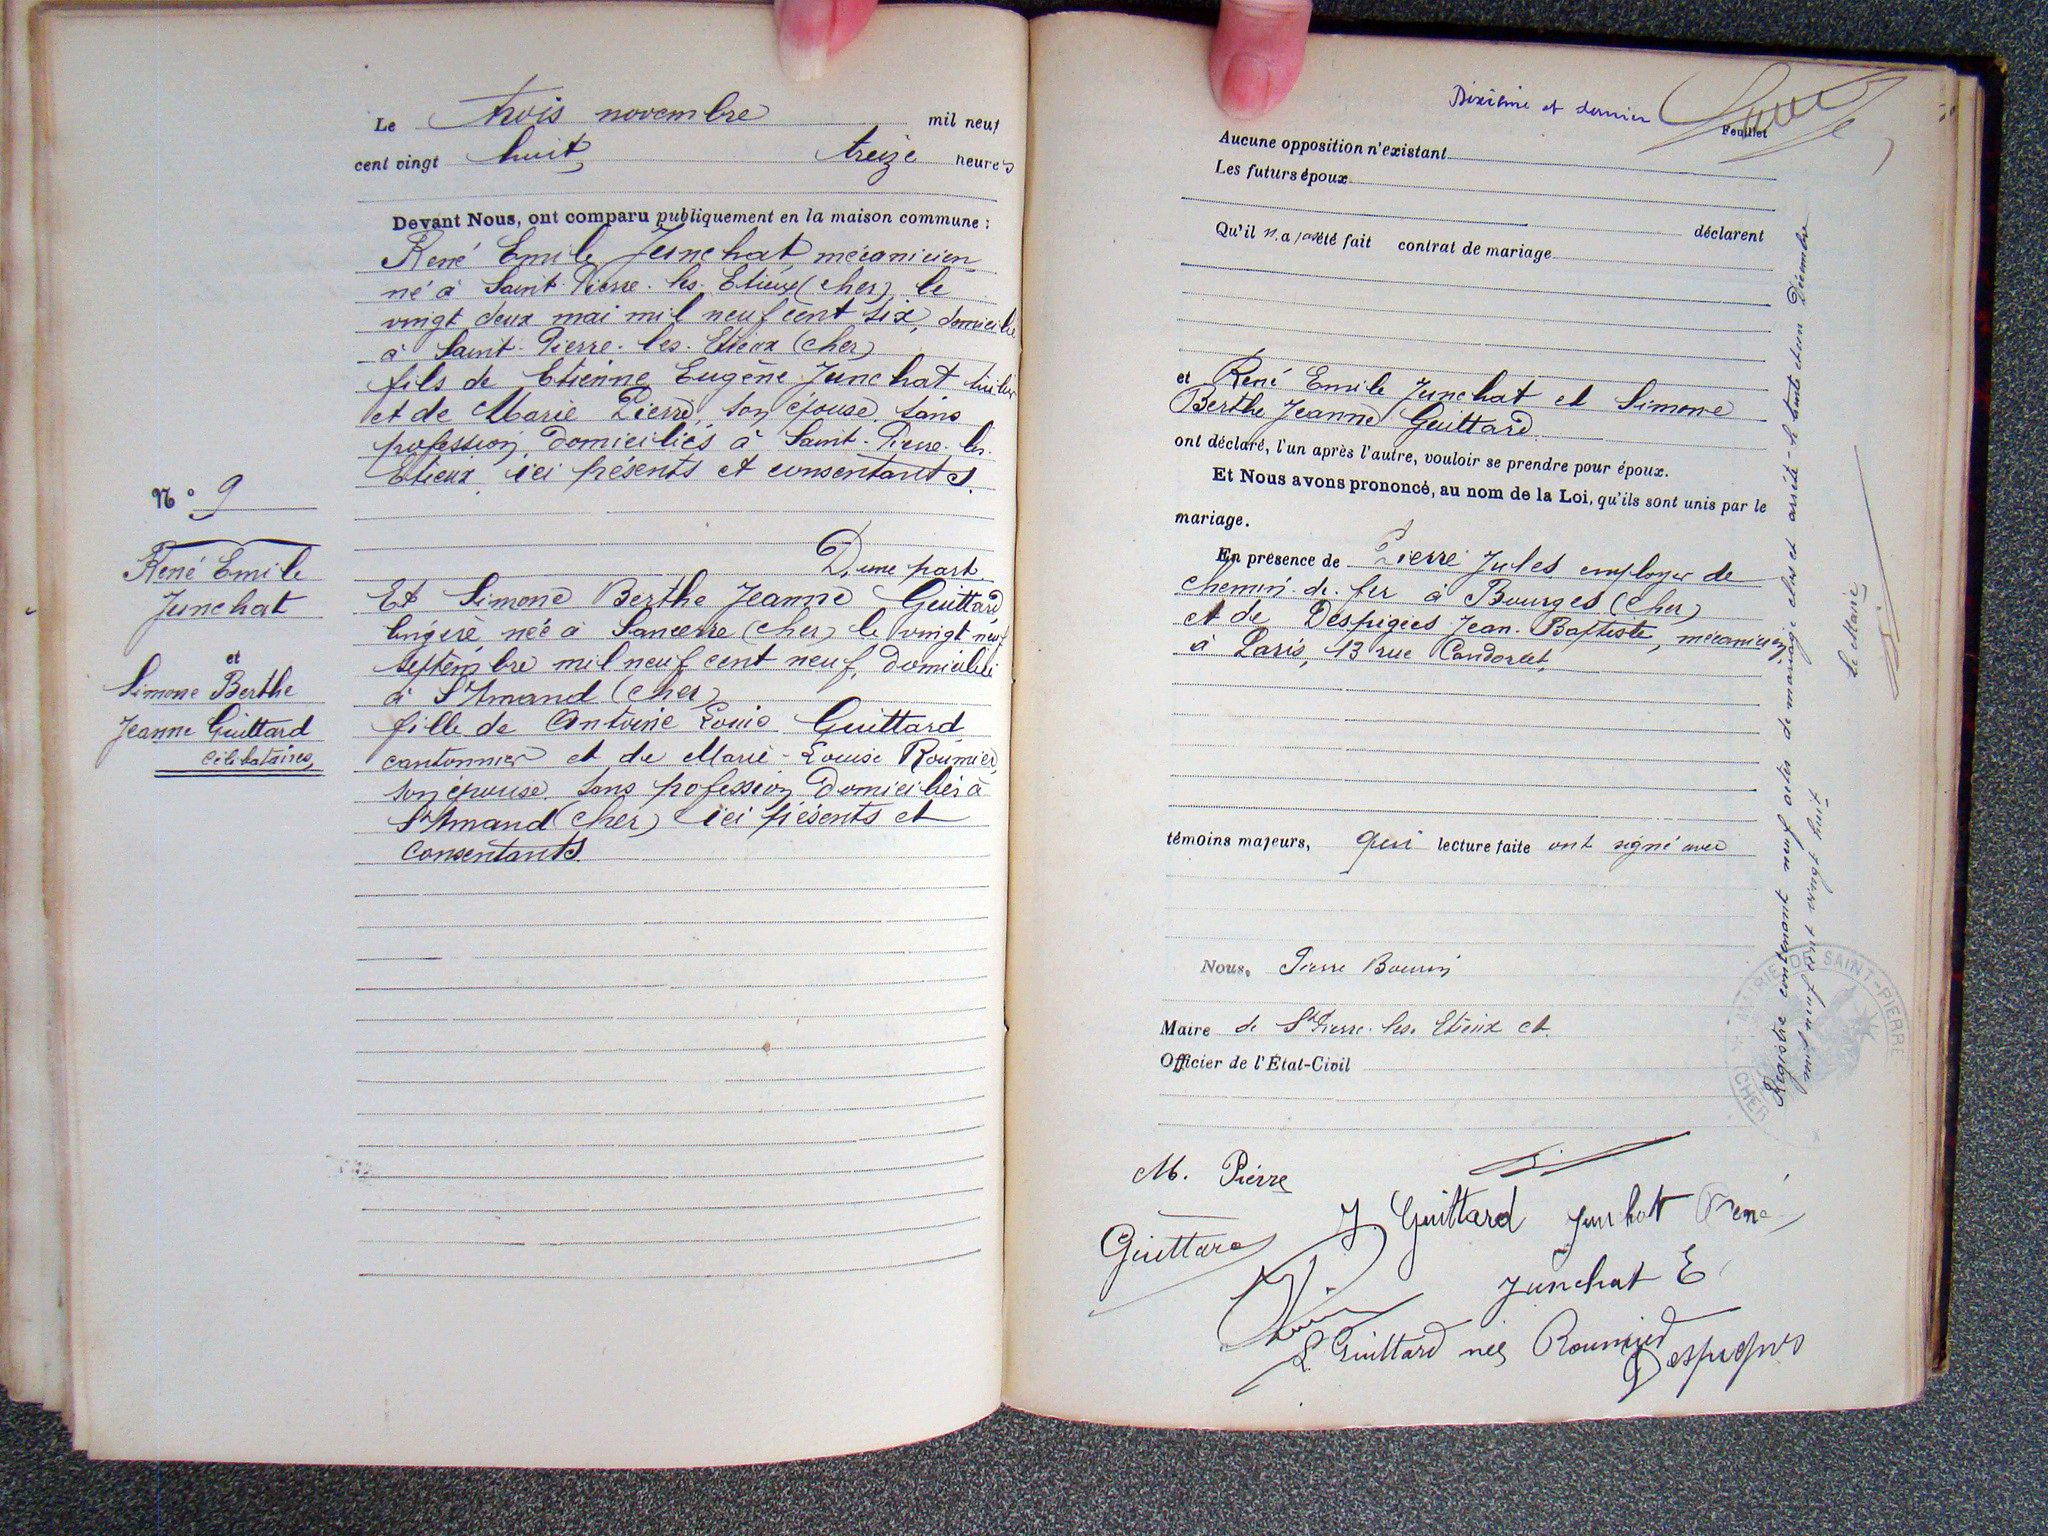 Le trois novembre mil neuf
cent vingt huit, treize heures
Devant Nous, ont comparu publiquement en la maison commune :
René Emile Junchat, mécanicien
né à Saint-Pierre-les-Etieux (cher), le
vingt deux mai mil neuf cent six, domicilié
à Saint-Pierre-les-Etieux (cher)
fils de Etienne Eugène Junchat tuilier
et de Marie Pierre, son épouse, sans
profession, domiciliés à Saint-Pierre-les-
Etieux, ici présents et consentants.
N° 9
René Emile
Junchat
et
Simone Berthe
Jeanne Guittard
célibataires,
D'une part
Et Simone Berthe Jeanne Guittard
lingère, née à Sancerre (cher) le vingt neuf
septembre mil neuf cent neuf, domiciliée
à St Amand (cher)
fille de Antoine Louis Guittard
cantonnier et de Marie-Louise Roumier,
son épouse, sans profession, domiciliés à
St Amand (cher) ici présents et
consentants.
Dixième et dernier
Feuillet
Aucune opposition n'existant
Les futurs époux
déclarent
Qu'il n'a pas été fait contrat de mariage
et René Emile Junchat et Simone
Berthe Jeanne Guittard
ont déclaré, l'un après l'autre, vouloir se prendre pour époux.
Et Nous avons prononcé, au nom de la Loi, qu'ils sont unis par le
mariage.
En présence de Pierre Jules employer de
chemin de fer à Bourges (cher)
et de Despignes Jean-Baptiste, mécanicien,
à Paris, 13 rue Candorcet,
témoins majeurs, qui lecture faite ont signé avec
Nous, Pierre
Maire de St Pierre-les-Etieux et
Officier de l'État-Civil
M. Pierre
J. Guittard Junchat René
Guittard
Junchat E
L. Guittard née Roumier
Despignes
Registre contenant neuf actes de mariage clos et arrêté le trente et un Décembre
mil neuf cent vingt huit
Le Maire
MAIRIE DE SAINT-PIERRE
CHER